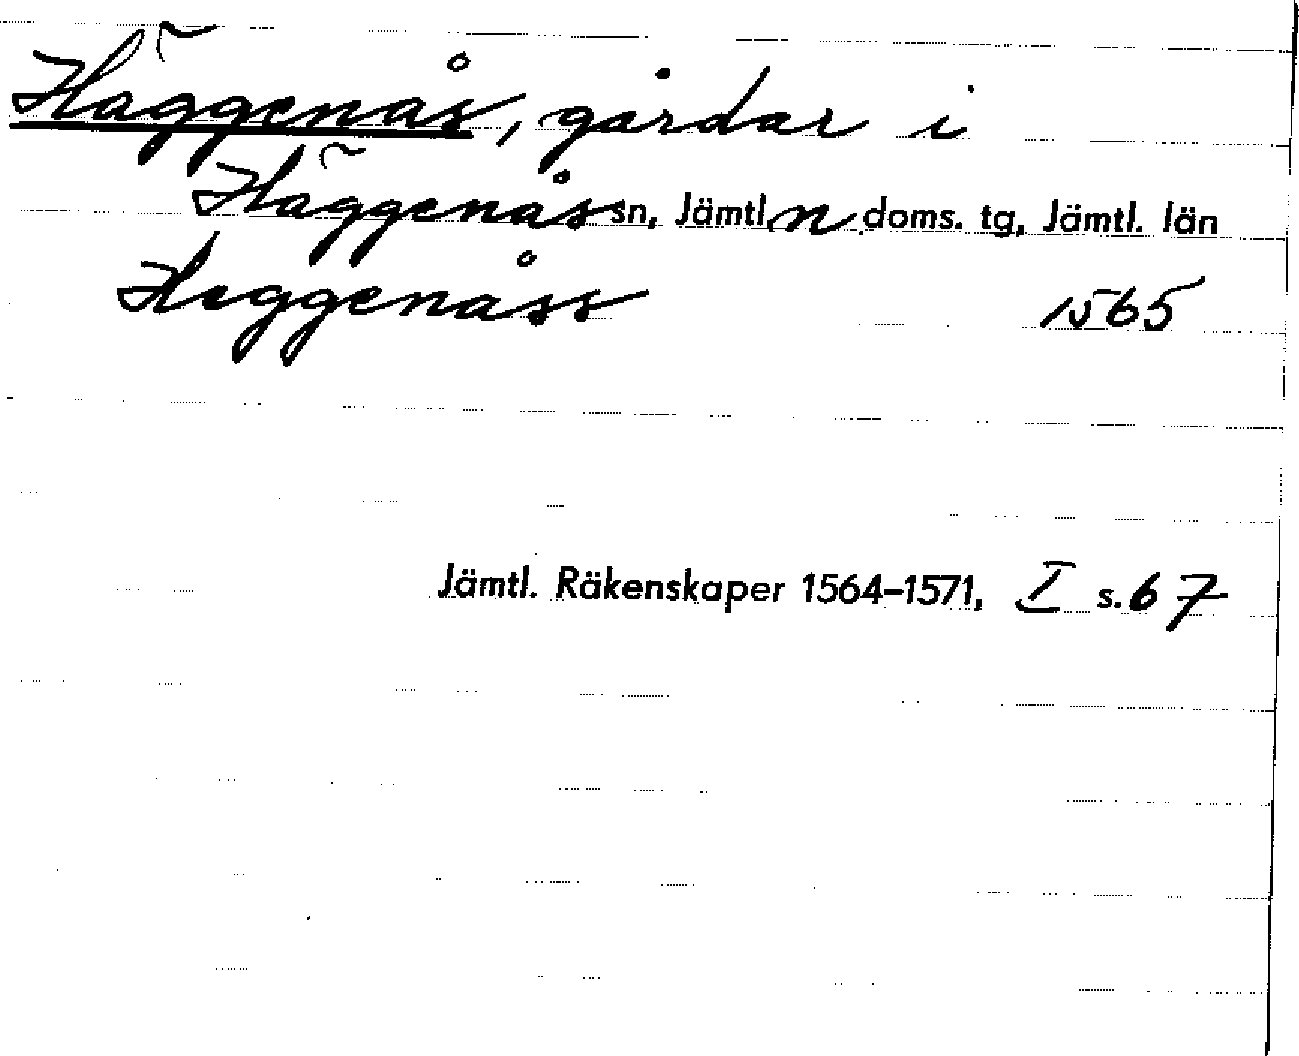 Häggenås, gårdar i
Häggenås sn, Jämtl. n doms. tg, Jämtl. län
Heggenåss 1565
Jämtl. Räkenskaper 1564–1571, I s. 67